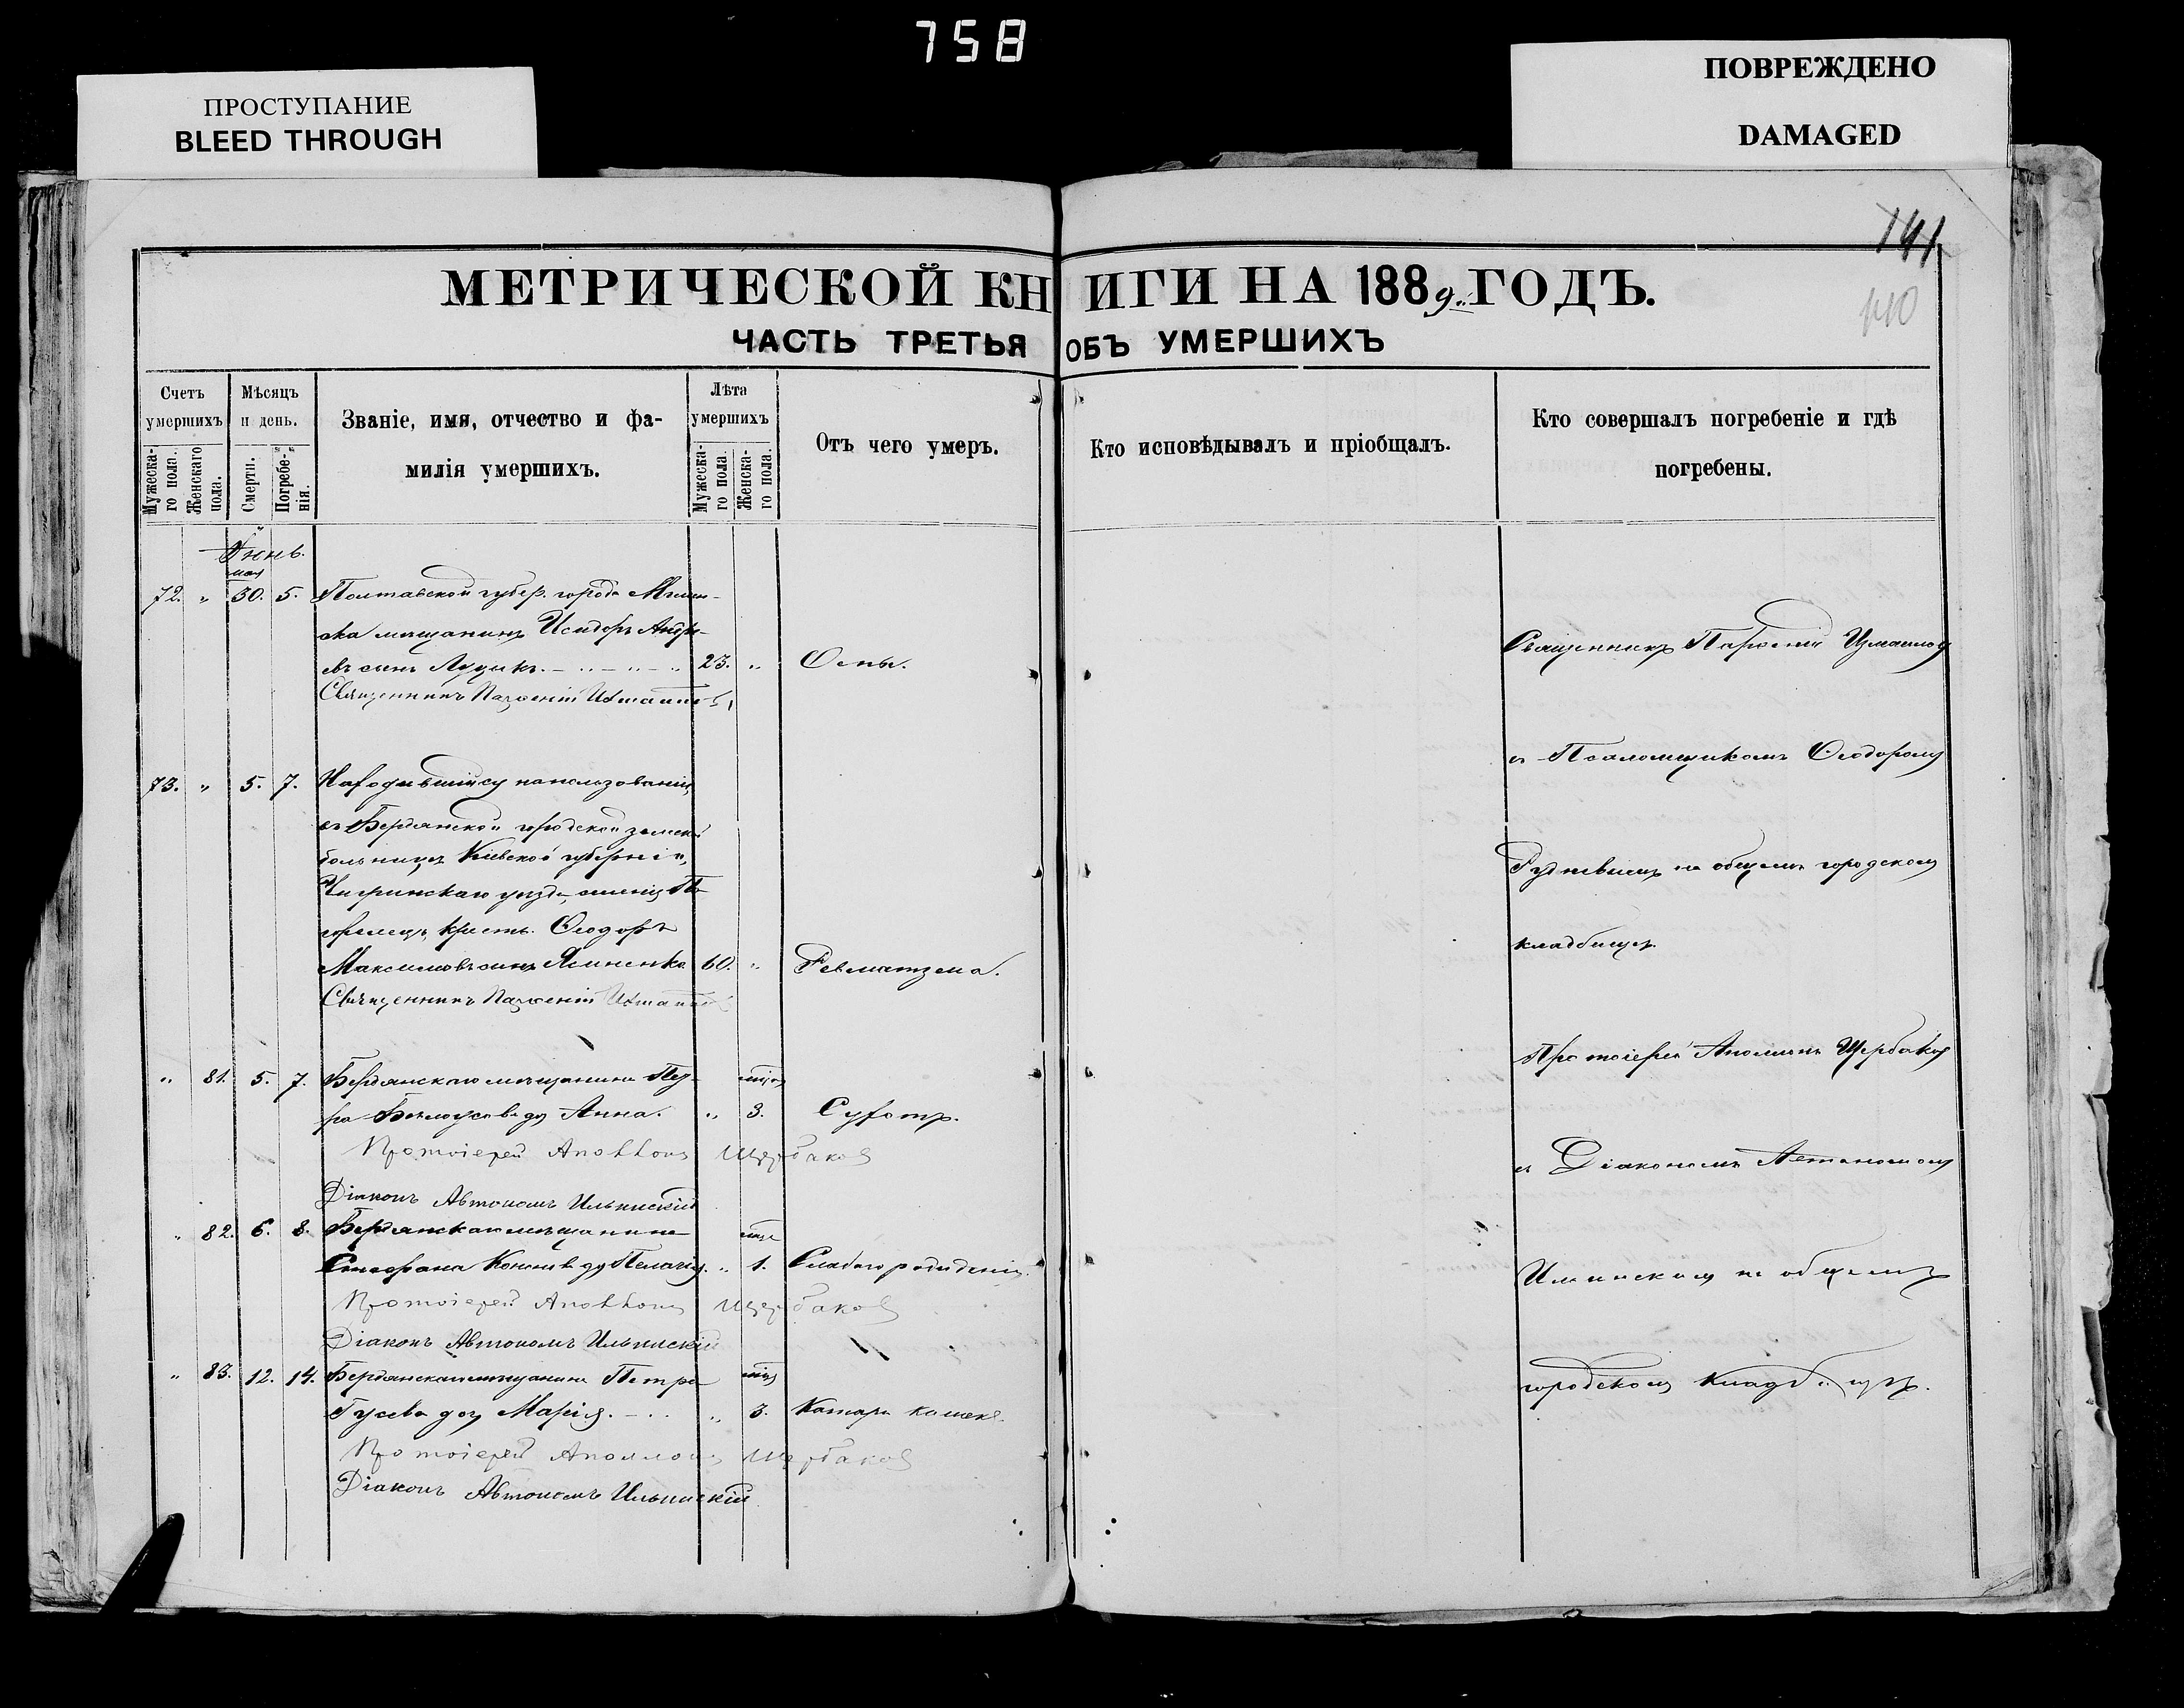 758
ПРОСТУПАНИЕ
BLEED THROUGH
ПОВРЕЖДЕНО
DAMAGED
141
140
МЕТРИЧЕСКОЙ КНИГИ НА 1889 ГОДЪ.
ЧАСТЬ ТРЕТЬЯ ОБЪ УМЕРШИХЪ
Счетъ умершихъ
Мужеска-го пола.
Женскаго пола.
Мѣсяцъ и день.
Смерти.
Погребе-нія.
Званіе, имя, отчество и фа-
милія умершихъ.
Лѣта умершихъ
Мужеска-го пола.
Женска-го пола.
Отъ чего умеръ.
Кто исповѣдывалъ и пріобщалъ.
Кто совершалъ погребеніе и гдѣ
погребены.
Іюнь.
мая
72. " 30. 5. Полтавской губер. города
мѣщанинъ Исидоръ Андре-
евъ сынъ 23. " Оспы.
Священникъ Парѳеній Измаиловъ
73. " 5. 7. Находившійся на пользованіи
въ Бердянской городской земской
больницѣ Кіевской губерніи,
Чигиринскаго уѣзда,
крест. Ѳеодоръ
Максимовъ сынъ Яхненко 60. " Ревматизма.
Священникъ Парѳеній Измаиловъ
" 81. 5. 7. Бердянскаго мѣщанина
Бѣлоусова дч Анна. " 3. Сухотъ.
Протоіерей Аполлонъ Щербаковъ
Діаконъ Автономъ Ильинскій
" 82. 6. 8. Бердянскаго мѣщанина
Стефана дч Пелагія. " 1. Слабаго рожденія.
Протоіерей Аполлонъ Щербаковъ
Діаконъ Автономъ Ильинскій
" 83. 12. 14. Бердянскаго мѣщанина Петра
Гусева доч Марія. " 3. Катара кишекъ.
Протоіерей Аполлонъ Щербаковъ
Діаконъ Автономъ Ильинскій
Священникъ Парѳеній Измаиловъ
съ Псаломщикомъ Ѳеодоромъ
Рудневымъ на общемъ городскомъ
кладбищѣ.
Протоіерей Аполлонъ Щербаковъ
съ Діакономъ Автономомъ
Ильинскимъ на общемъ
городскомъ кладбищѣ.